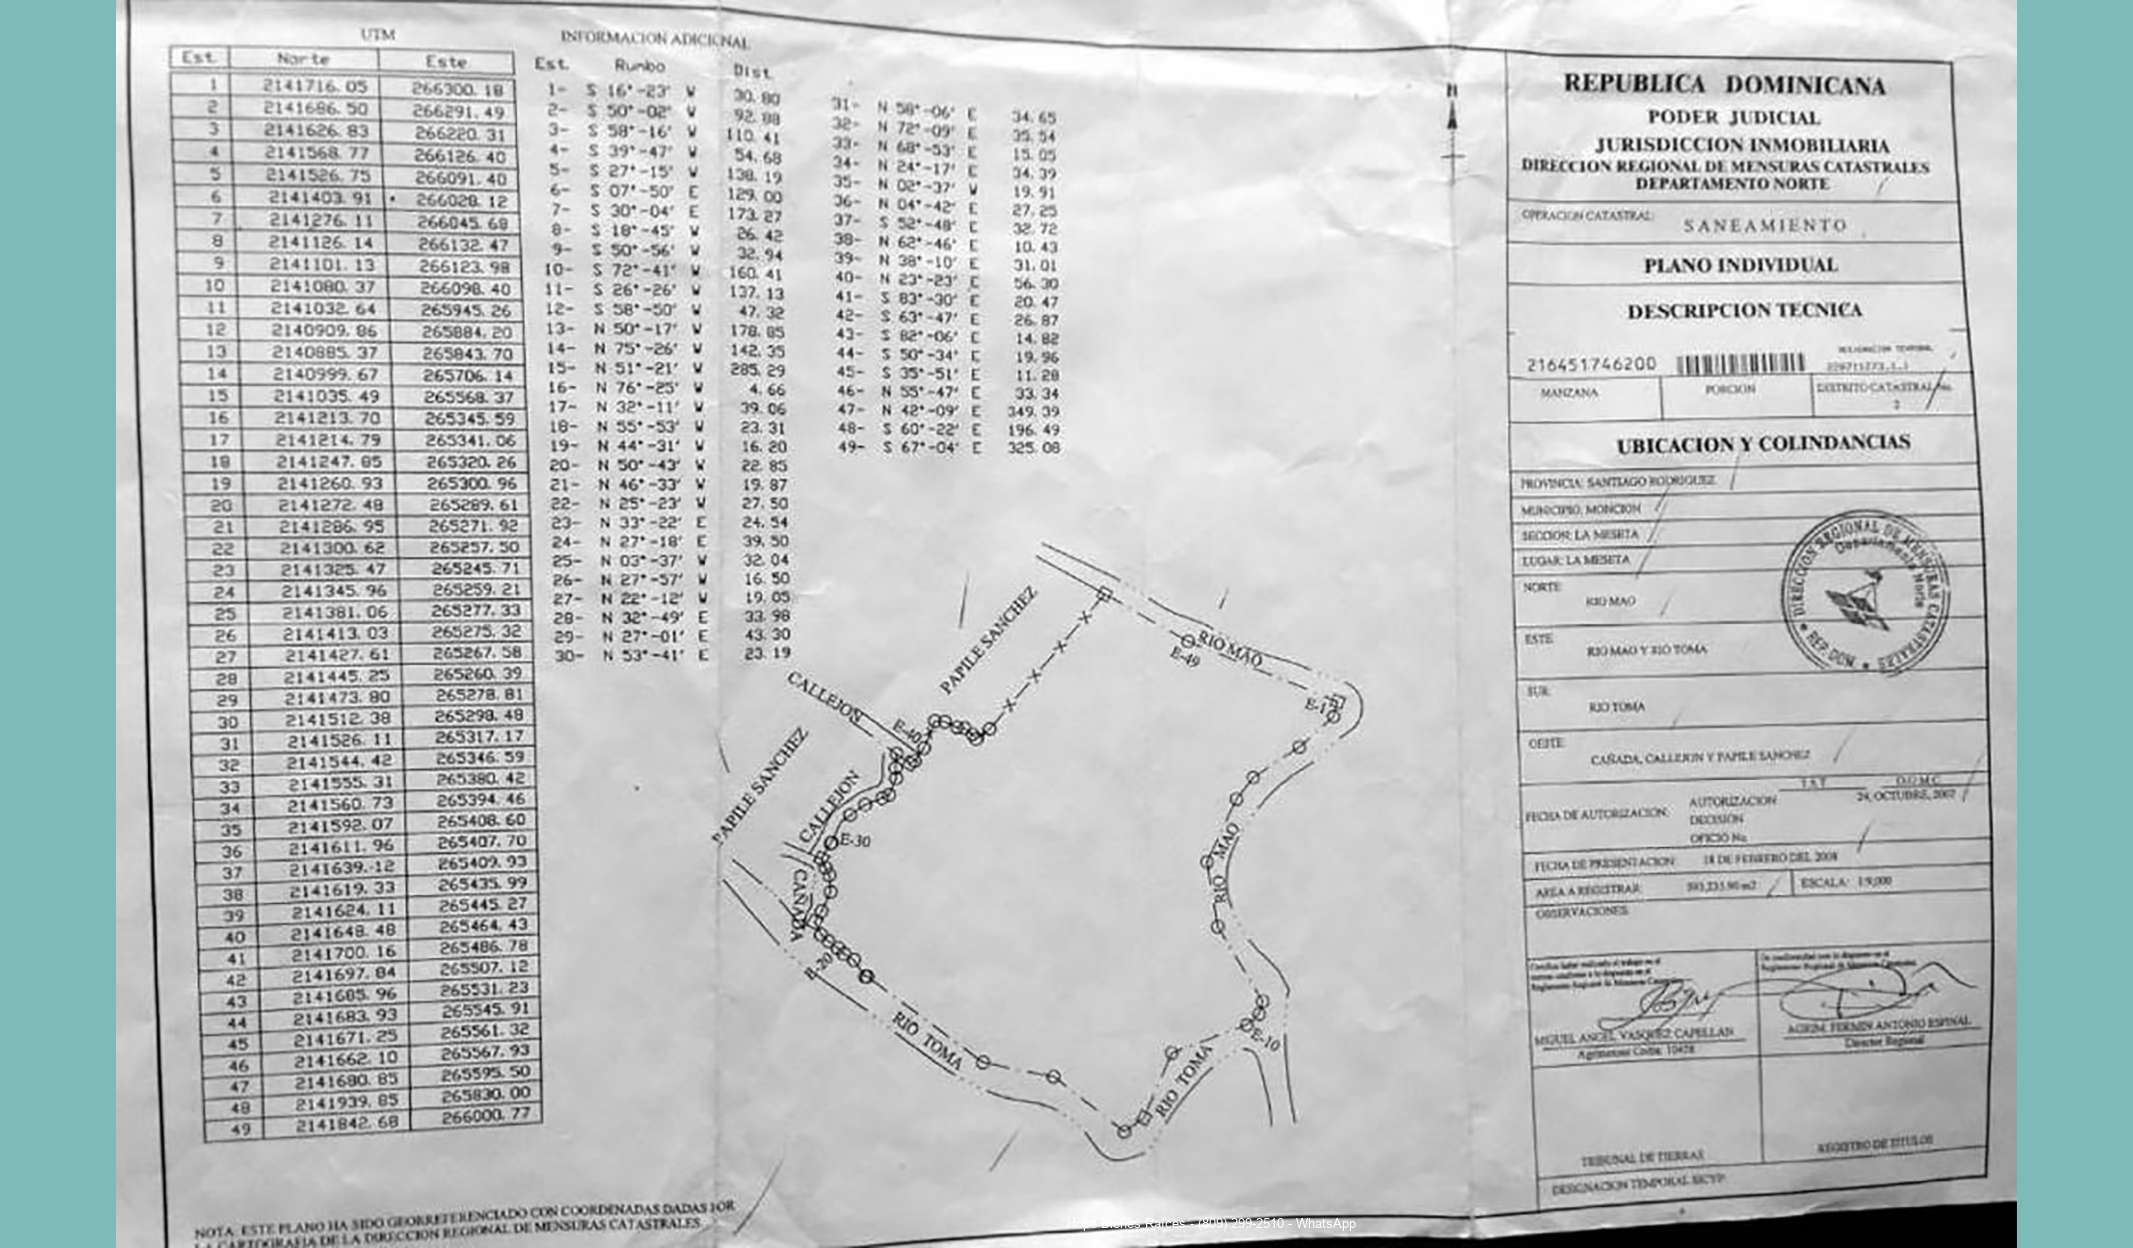 UTM
Est. Norte Este
1 2141716.05 266300.18
2 2141686.50 266291.49
3 2141626.83 266220.31
4 2141568.77 266126.40
5 2141526.75 266091.40
6 2141403.91 266028.12
7 2141276.11 266045.68
8 2141126.14 266132.47
9 2141101.13 266123.98
10 2141080.37 266098.40
11 2141032.64 265945.26
12 2140909.86 265884.20
13 2140885.37 265843.70
14 2140999.67 265706.14
15 2141035.49 265568.37
16 2141213.70 265345.59
17 2141214.79 265341.06
18 2141247.85 265320.26
19 2141260.93 265300.96
20 2141272.48 265289.61
21 2141286.95 265271.92
22 2141300.62 265257.50
23 2141325.47 265245.71
24 2141345.96 265259.21
25 2141381.06 265277.33
26 2141413.03 265275.32
27 2141427.61 265267.58
28 2141445.25 265260.39
29 2141473.80 265278.81
30 2141512.38 265298.48
31 2141526.11 265317.17
32 2141544.42 265346.59
33 2141555.31 265380.42
34 2141560.73 265394.46
35 2141592.07 265408.60
36 2141611.96 265407.70
37 2141639.12 265409.93
38 2141619.33 265435.99
39 2141624.11 265445.27
40 2141648.48 265464.43
41 2141700.16 265486.78
42 2141697.84 265507.12
43 2141685.96 265531.23
44 2141683.93 265545.91
45 2141671.25 265561.32
46 2141662.10 265567.93
47 2141680.85 265595.50
48 2141939.85 265830.00
49 2141842.68 266000.77
INFORMACION ADICIONAL
Est. Rumbo Dist.
1- S 16°-23' W 30.80
2- S 50°-02' W 92.88
3- S 58°-16' W 110.41
4- S 39°-47' W 54.68
5- S 27°-15' W 138.19
6- S 07°-50' E 129.00
7- S 30°-04' E 173.27
8- S 18°-45' W 26.42
9- S 50°-56' W 32.94
10- S 72°-41' W 160.41
11- S 26°-26' W 137.13
12- S 58°-50' W 47.32
13- N 50°-17' W 178.85
14- N 75°-26' W 142.35
15- N 51°-21' W 285.29
16- N 76°-25' W 4.66
17- N 32°-11' W 39.06
18- N 55°-53' W 23.31
19- N 44°-31' W 16.20
20- N 50°-43' W 22.85
21- N 46°-33' W 19.87
22- N 25°-23' W 27.50
23- N 33°-22' E 24.54
24- N 27°-18' E 39.50
25- N 03°-37' W 32.04
26- N 27°-57' W 16.50
27- N 22°-12' W 19.05
28- N 32°-49' E 33.98
29- N 27°-01' E 43.30
30- N 53°-41' E 23.19
31- N 58°-06' E 34.65
32- N 72°-09' E 35.54
33- N 68°-53' E 15.05
34- N 24°-17' E 34.39
35- N 02°-37' W 19.91
36- N 04°-42' E 27.25
37- S 52°-48' E 32.72
38- N 62°-46' E 10.43
39- N 38°-10' E 31.01
40- N 23°-23' E 56.30
41- S 83°-30' E 20.47
42- S 63°-47' E 26.87
43- S 82°-06' E 14.82
44- S 50°-34' E 19.96
45- S 35°-51' E 11.28
46- N 55°-47' E 33.34
47- N 42°-09' E 349.39
48- S 60°-22' E 196.49
49- S 67°-04' E 325.08
N
PAPILE SANCHEZ
RIO MAO
E-49
E-1
CALLEJON
E-40
PAPILE SANCHEZ
CALLEJON
E-30
RIO MAO
CAÑADA
E-20
RIO TOMA
E-10
RIO TOMA
REPUBLICA DOMINICANA
PODER JUDICIAL
JURISDICCION INMOBILIARIA
DIRECCION REGIONAL DE MENSURAS CATASTRALES
DEPARTAMENTO NORTE
OPERACION CATASTRAL: SANEAMIENTO
PLANO INDIVIDUAL
DESCRIPCION TECNICA
DESIGNACION TEMPORAL
216451746200
MANZANA PORCION DISTRITO CATASTRAL No.
2
UBICACION Y COLINDANCIAS
PROVINCIA: SANTIAGO RODRIGUEZ
MUNICIPIO: MONCION
SECCION: LA MESETA
LUGAR: LA MESETA
NORTE:
RIO MAO
ESTE:
RIO MAO Y RIO TOMA
SUR:
RIO TOMA
OESTE:
CAÑADA, CALLEJON Y PAPILE SANCHEZ
DIRECCION REGIONAL DE MENSURAS CATASTRALES
Departamento Norte
REP. DOM.
T.S.T. D.G.M.C.
FECHA DE AUTORIZACION: AUTORIZACION 24, OCTUBRE, 2007
DECISION
OFICIO No.
FECHA DE PRESENTACION: 18 DE FEBRERO DEL 2008
AREA A REGISTRAR: ESCALA: 1:9,000
OBSERVACIONES:
MIGUEL ANGEL VASQUEZ CAPELLAN
Agrimensor Codia: 10458
AGRIM. FERMIN ANTONIO ESPINAL
Director Regional
TRIBUNAL DE TIERRAS
REGISTRO DE TITULOS
DESIGNACION TEMPORAL SICYP:
NOTA: ESTE PLANO HA SIDO GEORREFERENCIADO CON COORDENADAS DADAS POR
LA CARTOGRAFIA DE LA DIRECCION REGIONAL DE MENSURAS CATASTRALES
Bienes Raíces - (809) 299-2510 - WhatsApp